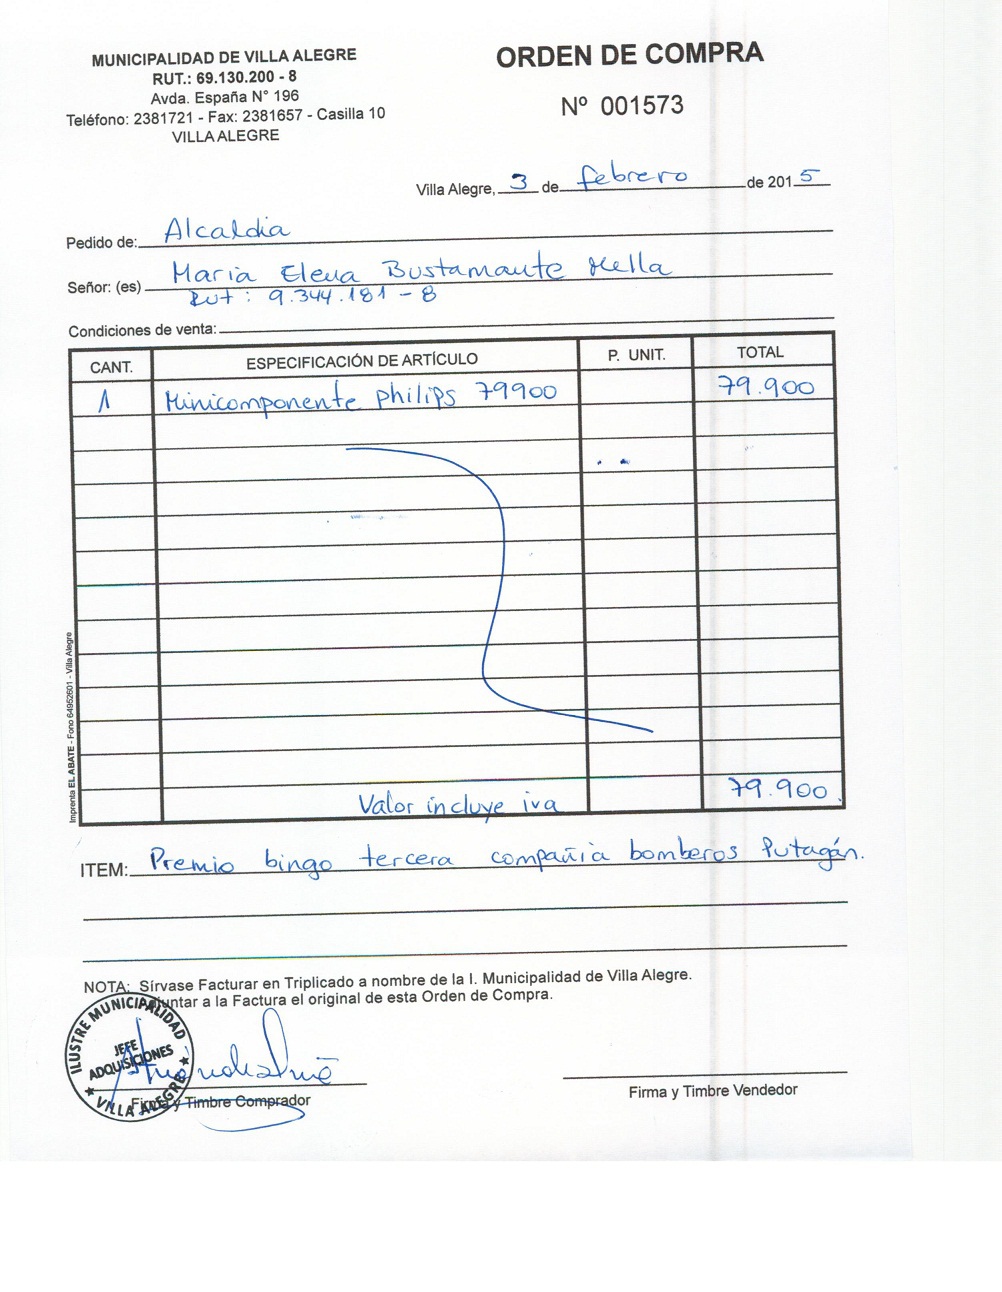 MUNICIPALIDAD DE VILLA ALEGRE
RUT.: 69.130.200 - 8
Avda. España N° 196
Teléfono: 2381721 - Fax: 2381657 - Casilla 10
VILLA ALEGRE
ORDEN DE COMPRA
Nº 001573
Villa Alegre, 3 de febrero de 2015
Pedido de: Alcaldia
Señor: (es) Maria Elena Bustamante Mella
Rut : 9.344.181 - 8
Condiciones de venta:
CANT. ESPECIFICACIÓN DE ARTÍCULO P. UNIT. TOTAL
1 Minicomponente philips 79900 79.900
Valor incluye iva 79.900
Imprenta EL ABATE - Fono 64952601 - Villa Alegre
ITEM: Premio bingo tercera compañia bomberos Putagán.
NOTA: Sírvase Facturar en Triplicado a nombre de la I. Municipalidad de Villa Alegre.
Adjuntar a la Factura el original de esta Orden de Compra.
ILUSTRE MUNICIPALIDAD
JEFE
ADQUISICIONES
VILLA ALEGRE
Firma y Timbre Comprador
Firma y Timbre Vendedor